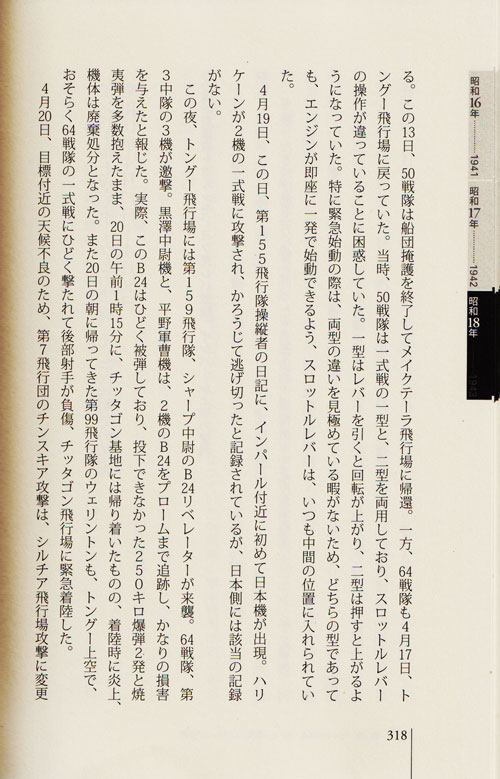 昭和16年
1941
昭和17年
1942
昭和18年
る。この13日、50戦隊は船団掩護を終了してメイクテーラ飛行場に帰還。一方、64戦隊も4月17日、ト
ングー飛行場に戻っていた。当時、50戦隊は一式戦の一型と、二型を両用しており、スロットルレバー
の操作が違っていることに困惑していた。一型はレバーを引くと回転が上がり、二型は押すと上がるよ
うになっていた。特に緊急始動の際は、両型の違いを見極めている暇がないため、どちらの型であって
も、エンジンが即座に一発で始動できるよう、スロットルレバーは、いつも中間の位置に入れられてい
た。
4月19日、この日、第155飛行隊操縦者の日記に、インパール付近に初めて日本機が出現。ハリ
ケーンが2機の一式戦に攻撃され、かろうじて逃げ切ったと記録されているが、日本側には該当の記録
がない。
この夜、トングー飛行場には第159飛行隊、シャープ中尉のB24リベレーターが来襲。64戦隊、第
3中隊の3機が邀撃。黒澤中尉機と、平野軍曹機は、2機のB24をプロームまで追跡し、かなりの損害
を与えたと報じた。実際、このB24はひどく被弾しており、投下できなかった250キロ爆弾2発と焼
夷弾を多数抱えたまま、20日の午前1時15分に、チッタゴン基地には帰り着いたものの、着陸時に炎上、
機体は廃棄処分となった。また20日の朝に帰ってきた第99飛行隊のウェリントンも、トングー上空で、
おそらく64戦隊の一式戦にひどく撃たれて後部射手が負傷、チッタゴン飛行場に緊急着陸した。
4月20日、目標付近の天候不良のため、第7飛行団のチンスキア攻撃は、シルチア飛行場攻撃に変更
318